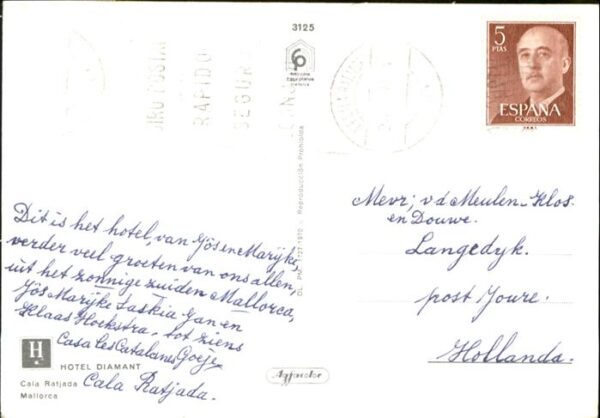 3125
GIRO POSTAL
RAPIDO
SEGURO
5
PTAS
ESPAÑA
CORREOS
Dit is het hotel, van Jös en Marijke,
verder veel groeten van ons allen,
uit het zonnige zuiden Mallorca,
Jös Marijke Saskia Jan en
Klaas Hoekstra, tot ziens
Casa Les Catalanes
Cala Ratjada.
H
HOTEL DIAMANT
Cala Ratjada
Mallorca
Reproducción Prohibida
Mevr; v d Meulen-Klos.
en Douwe.
Langedyk.
post Joure.
Hollanda.